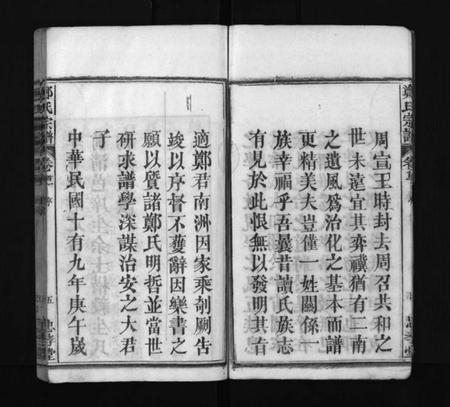 鄭氏宗譜
周宣王時封去周召共和之
世未遠宜其弈禩猶有二南
之遺風爲治化之基本而譜
更精美夫豈僅一姓關係一
族幸福乎吾曩昔讀氏族志
有見於此恨無以發明其旨
適鄭君南洲因家乘剞劂告
竣以序督不獲辭因樂書之
願以質諸鄭氏明哲並當世
研求譜學深謀治安之大君
子
中華民國十有九年庚午歲
鄭氏宗譜
五